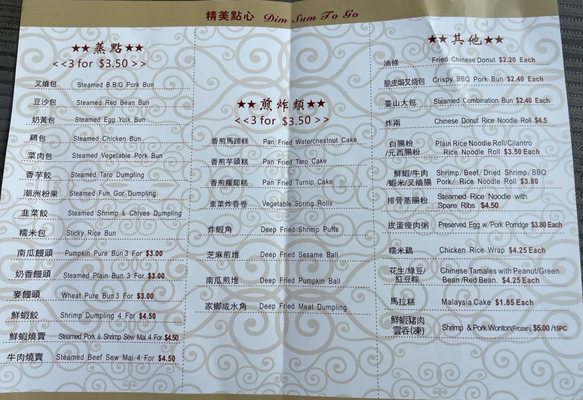 精美點心 Dim Sum To Go
★★ 蒸點 ★★
<<3 for $3.50 >>
叉燒包 Steamed B.B.Q Pork Bun
豆沙包 Steamed Red Bean Bun
奶黃包 Steamed Egg Yolk Bun
鷄包 Steamed Chicken Bun
菜肉包 Steamed Vegetable Pork Bun
香芋餃 Steamed Taro Dumpling
潮洲粉果 Steamed Fun Gor Dumpling
韭菜餃 Steamed Shrimp & Chives Dumpling
糯米包 Sticky Rice Bun
南瓜饅頭 Pumpkin Pure Bun 3 For $3.00
奶香饅頭 Steamed Plain Bun 3 For $3.00
麥饅頭 Wheat Pure Bun 3 For $3.00
鮮蝦餃 Shrimp Dumpling 4 For $4.50
鮮蝦燒賣 Steamed Pork & Shrimp Sew Mai 4 For $4.50
牛肉燒賣 Steamed Beef Sew Mai 4 For $4.50
★★ 煎炸類 ★★
<<3 for $3.50 >>
香煎馬蹄糕 Pan Fried Waterchestnut Cake
香煎芋頭糕 Pan Fried Taro Cake
香煎蘿蔔糕 Pan Fried Turnip Cake
素菜炸香卷 Vegetable Spring Rolls
炸蝦角 Deep Fried Shrimp Puffs
芝麻煎堆 Deep Fried Sesame Ball
南瓜煎堆 Deep Fried Pumpkin Ball
家鄉咸水角 Deep Fried Meat Dumpling
★★ 其他 ★★
油條 Fried Chinese Donut $2.20 Each
脆皮焗叉燒包 Crispy BBQ Pork Bun $2.40 Each
臺山大包 Steamed Combination Bun $2.40 Each
炸兩 Chinese Donut Rice Noodle Roll $4.5
白腸粉 Plain Rice Noodle Roll/Cilantro
/元西腸粉 Rice Noodle Roll $3.50 Each
鮮蝦/牛肉 Shrimp/Beef/Dried Shrimp/BBQ
/蝦米/叉燒腸 Pork/ Rice Noodle Roll $3.80
排骨蒸腸粉 Steamed Rice Noodle with
Spare Ribs $4.50
皮蛋瘦肉粥 Preserved Egg w/Pork Porridge $3.80 Each
糯米鷄 Chicken Rice Wrap $4.25 Each
花生/綠豆/ Chinese Tamales with Peanut/Green
紅豆粽 Bean/Red Bean. $4.25 Each
馬拉糕 Malaysia Cake $1.85 Each
鮮蝦豬肉
雲吞(凍) Shrimp & Pork Wonton(Frozen) $5.00 /15PC